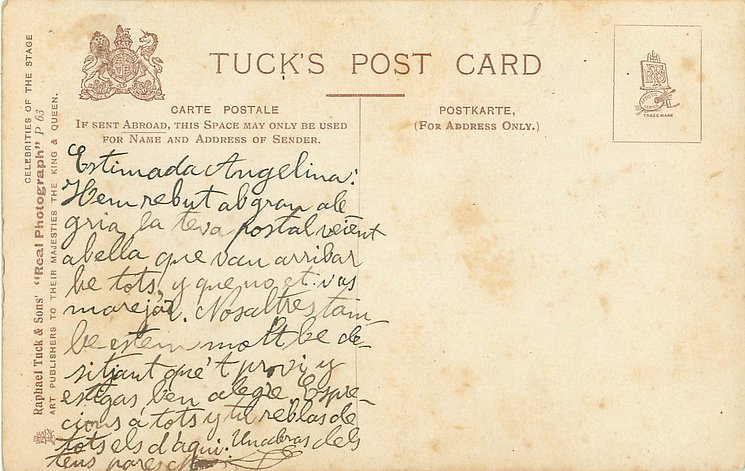 TUCK'S POST CARD
CARTE POSTALE
IF SENT ABROAD, THIS SPACE MAY ONLY BE USED
FOR NAME AND ADDRESS OF SENDER.
POSTKARTE,
(FOR ADDRESS ONLY.)
TRADE MARK
CELEBRITIES OF THE STAGE
Raphael Tuck & Sons' "Real Photograph" P 63
ART PUBLISHERS TO THEIR MAJESTIES THE KING & QUEEN.
Estimada Angelina:
Hem rebut ab gran ale
gria, la teva postal veient
abella que van arribar
be tots, y que no et vas
marejar. Nosaltres tam-
be estem molt be de-
sitjant que't provi y
estigas ben alegre. Expre-
cions á tots y tu reblas de
tots els d'aqui. Un abras dels
teus pares